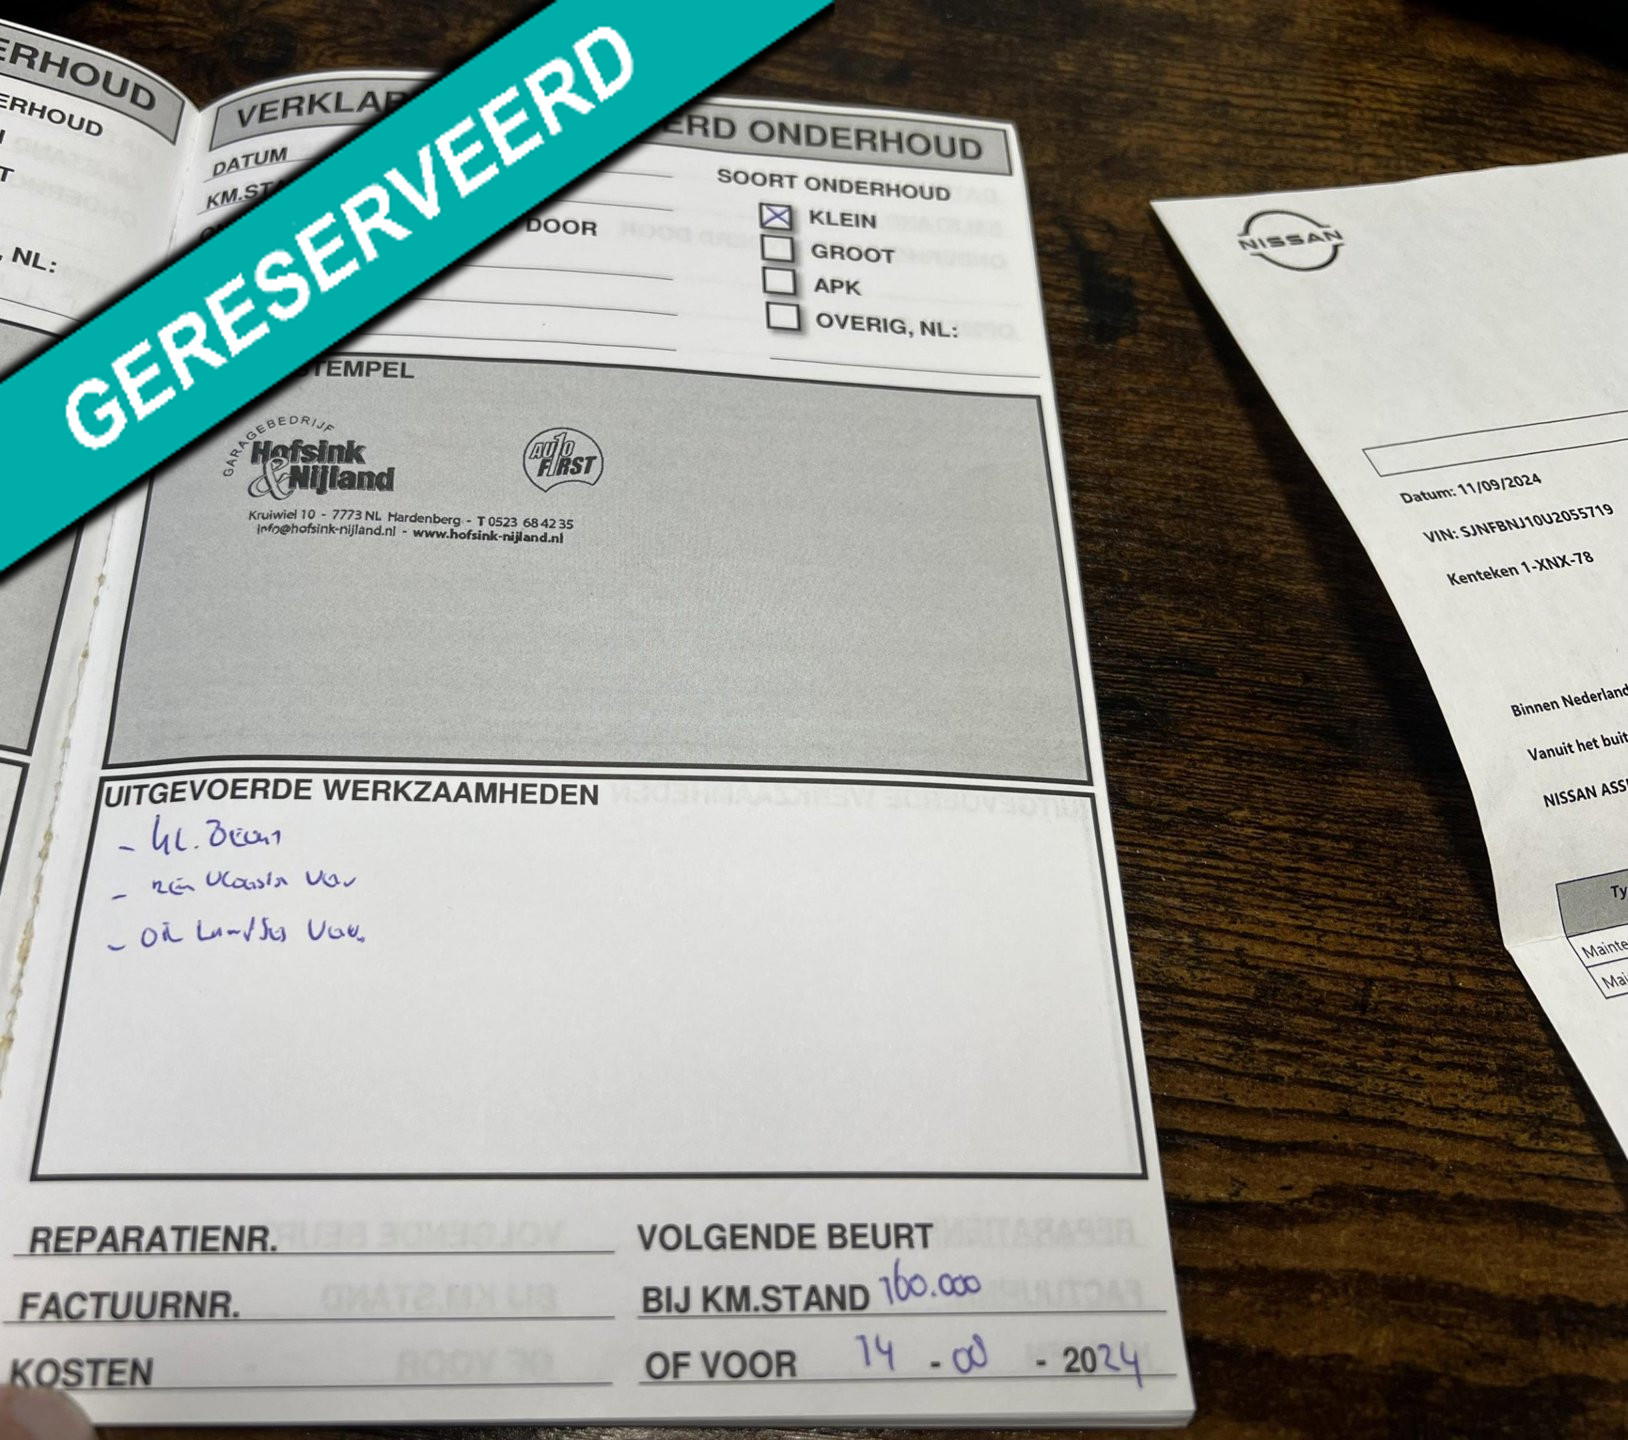 GERESERVEERD
ERHOUD
ERHOUD
T
, NL:
VERKLAR
ERD ONDERHOUD
DATUM
KM.STA
DOOR
SOORT ONDERHOUD
KLEIN
GROOT
APK
OVERIG, NL:
STEMPEL
GARAGEBEDRIJF
Hofsink
& Nijland
AUTO
FIRST
Kruiwiel 10 - 7773 NL Hardenberg - T 0523 68 42 35
info@hofsink-nijland.nl - www.hofsink-nijland.nl
UITGEVOERDE WERKZAAMHEDEN
- KL. Beurt
REPARATIENR.
FACTUURNR.
KOSTEN
VOLGENDE BEURT
BIJ KM.STAND 160.000
OF VOOR 14 - 08 - 2024
NISSAN
Datum: 11/09/2024
VIN: SJNFBNJ10U2055719
Kenteken 1-XNX-78
Binnen Nederland
Vanuit het buit
NISSAN ASS
Ty
Mainte
Mai